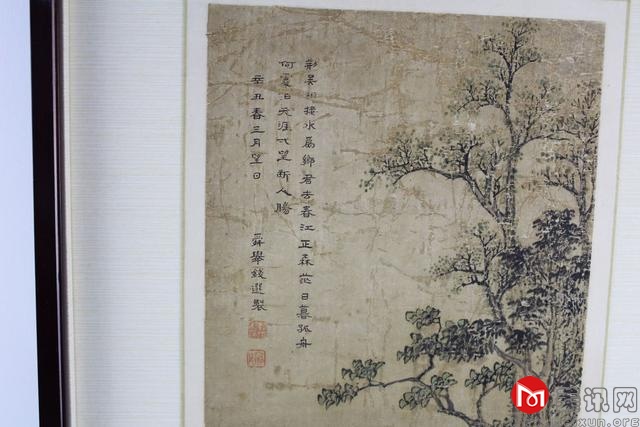 荆吴相接水為鄉君去春江正淼茫日暮孤舟
何處泊天涯弌望斷人腸
辛丑春三月望日
舜舉錢選製
讯网
xun.org